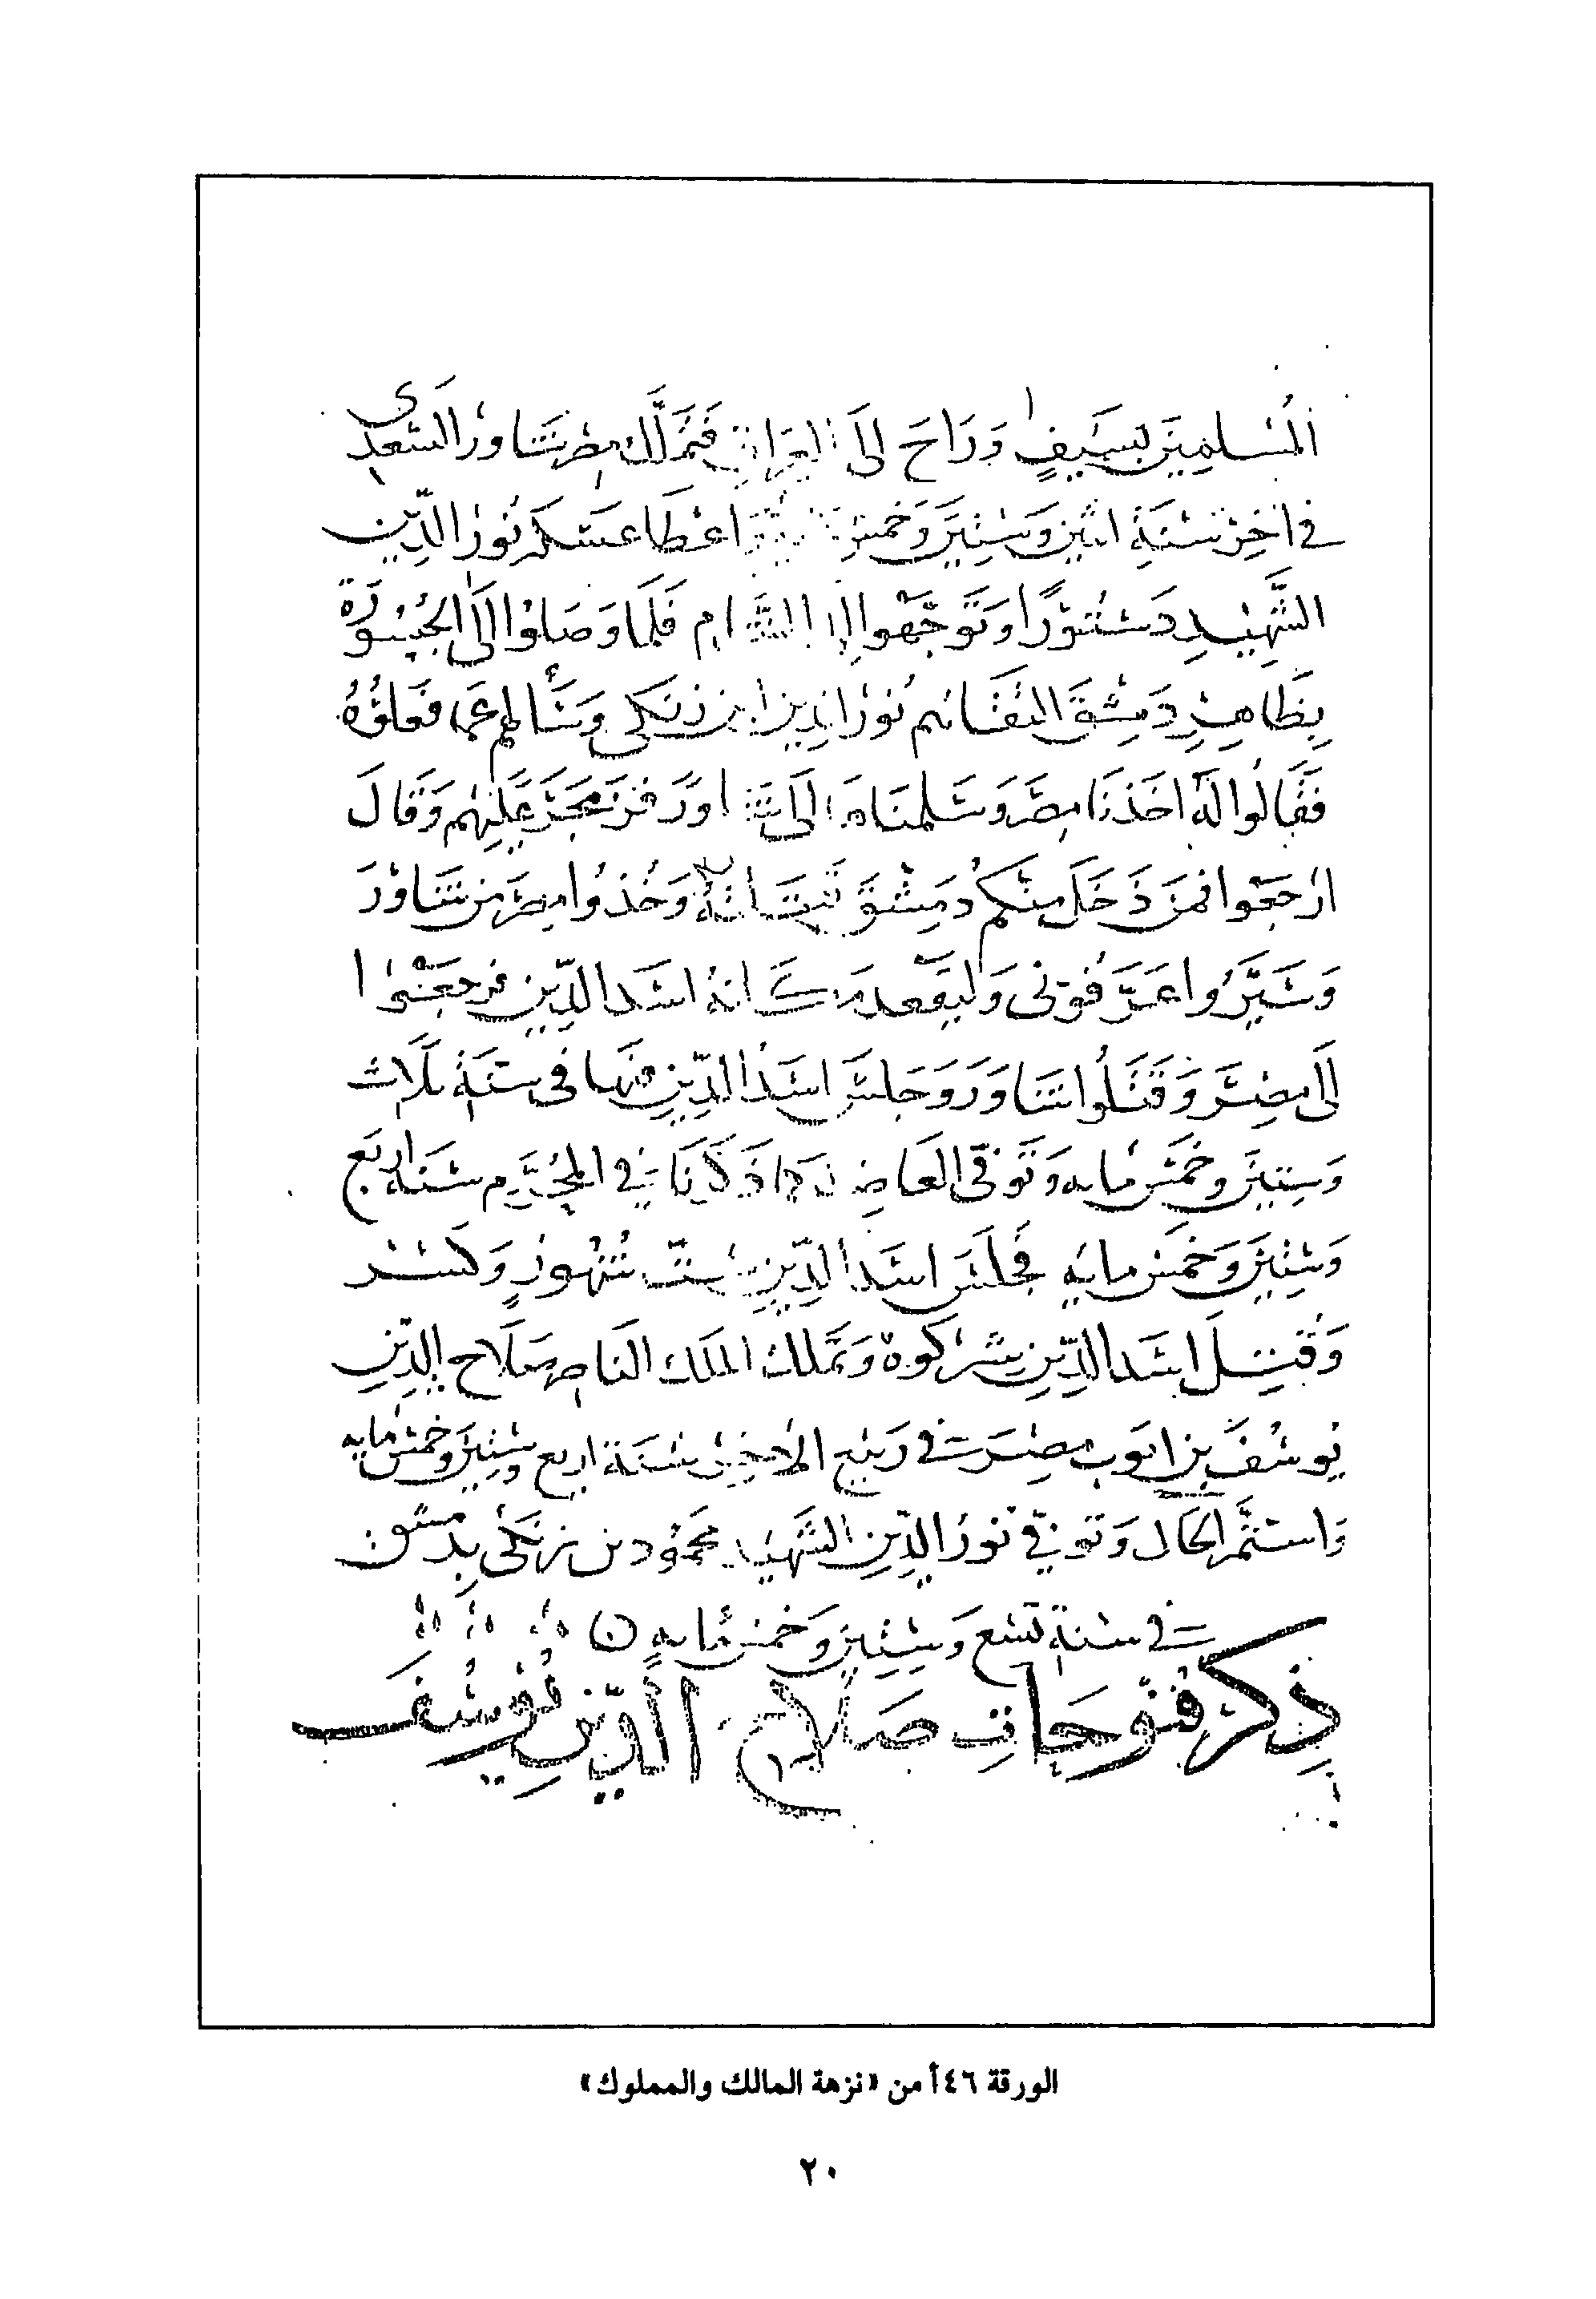 المُسلمِينَ بسَيفٍ وَرَاحَ اِلَى العِرَاقِ فتمَلَّك مِصر شَاورُ السّعدِى
فى اخِر سَنَةِ اثنين وَسِتِينَ وَخمس اعْطَا عَسْكَر نُورُ الدِّين
الشَّهِيْدِ دَسْتوْرًا وَتَوَجَّهوا الى الشَّام فَلمَا وَصَلوُا الَى الجُسُورَة
بِظَاهِرِ دِمَشِقَ التقَاهم نُورُ الدِين ابن زنكى وَسَأَلهم عَما فَعَلوُهُ
فَقَالُوا لَهُ اخَذنَا مِصَر وَسَلمنَاهَا الَى شَاوَر فَحَرَّجَ عَلَيْهم وَقَالَ
ارْجَعُوا فمن دَخَلَ مِنكُم دِمَشْقَ وَخُذُوا مِصَر من شَاوْرَ
وَسَيَّرُوا عَرَّفُونى وَليَقعد مَكَانهُ اسَد الدِّين فرجعَوُا
الَى مِصْرَ وَقَتَلُوا شَاوَرَ وَجَلسَ اسَدُ الدِّين فيهَا فى سَنَةِ ثلَاث
وَستِينَ وخَمسْمايه وَتَوَفّى العَاضِد كمَا ذَكَرنَا فِي المُحَرَّم سَنَة اربَع
وَسِتِينَ وَخَمس مايه فجَلسَ اسَدُ الدِّين سِتّ شُهُورٍ وَكسْر
وَقُتِلَ اسَد الدِّين شيركوه وَتمَلك المَلك النَاصِر صَلَاح الدِّين
يُوسُفَ بن ايوَب مِصْرَ فى رَبيْع الاخِر سَنَة اربع وَسِتينَ وخمسْمايه
وَاستمَّر الحَال وَتوفيَ نُورُ الدِّين الشَّهِيْد محَموُد بن زنكى بِدمشق
فى سَنة تسْع وَسِتين وَخمس مايه
ذِكر فتُوحَات صَلَاح الدِّين يُوسُف
الورقة ٤٦أ من «نزهة المالك والمملوك»
٢٠